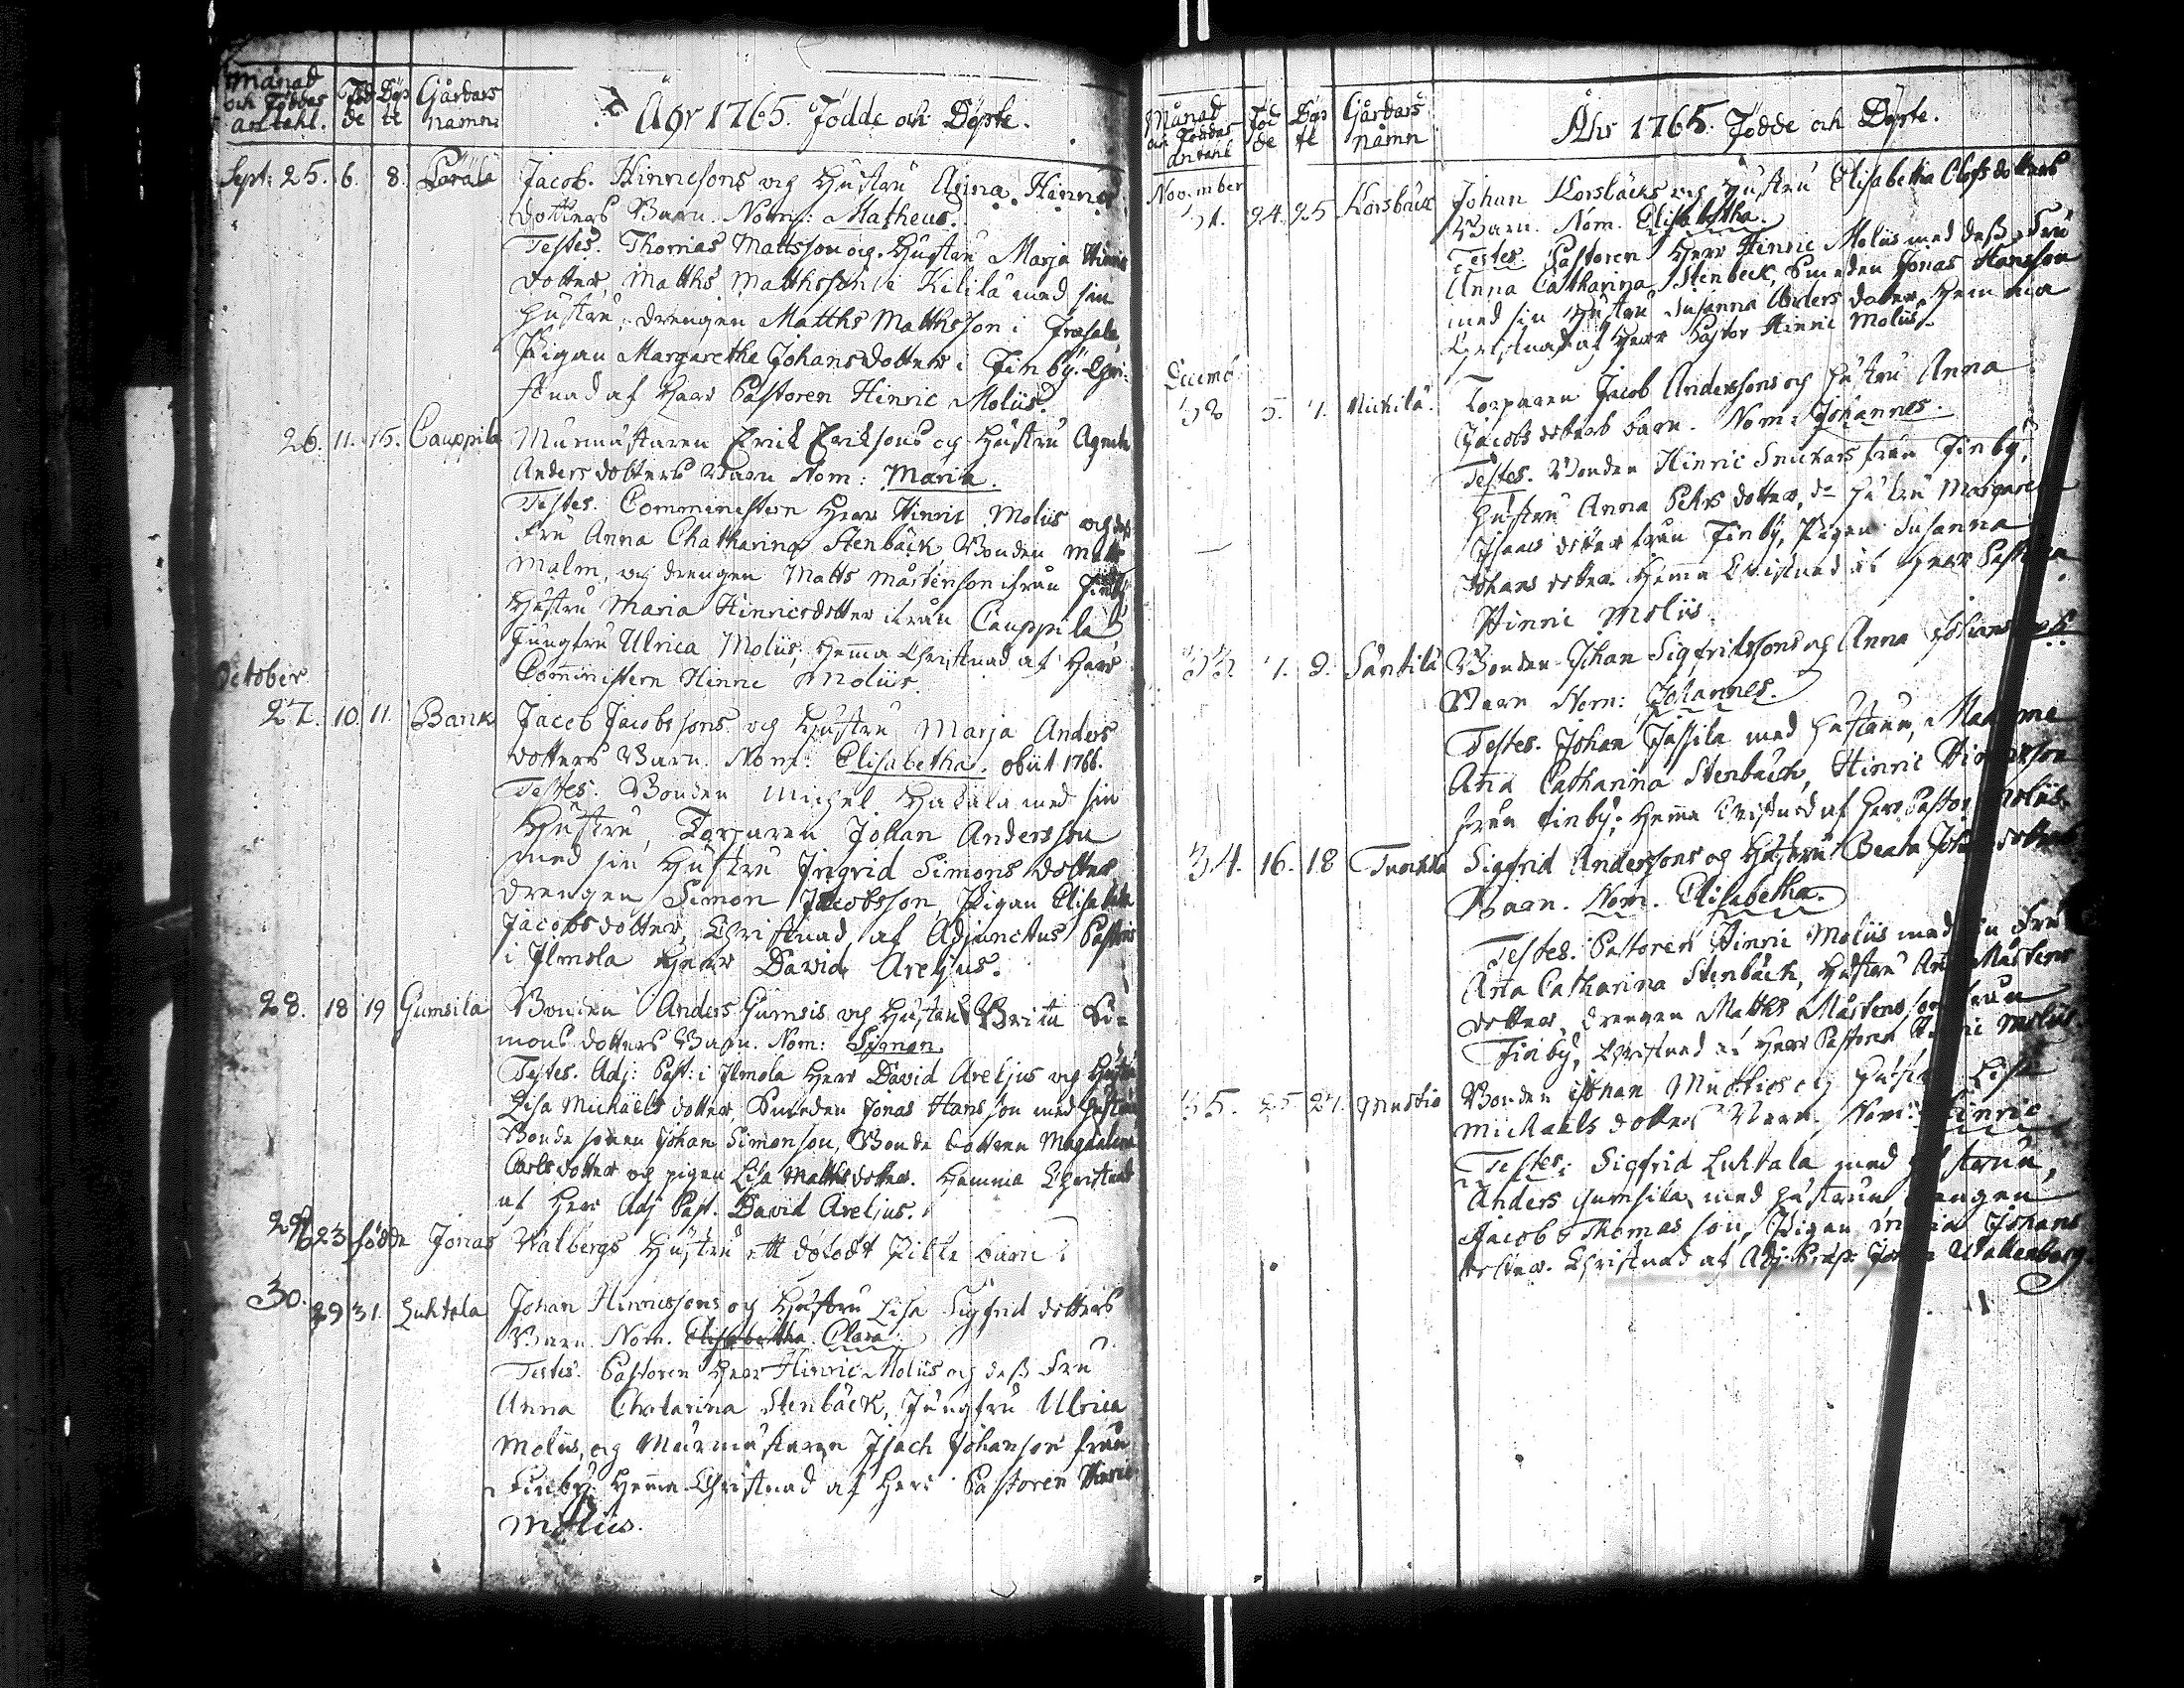 Månad och Föddas antahl. Föd de Döp te Gårdars namn Åhr 1765. Födde och Döpte.
Sept: 25. 6. 8. Jacob Hinricsons og Hustru Anna Hinrics
dotters Barn. Nom: Matheus.
Testes. Thomas Mattsson og Hustru Marja Hinrics
dotter, Matths Matthsson i Kilila med sin
Hustru, drengen Matths Matthsson i
Pigan Margaretha Johansdotter i Finby. Chri-
stnad af Herr Pastoren Hinric Moliis.
26. 11. 15. Cauppila Murmästaren Erik Eriksons og Hustru Agneta
Andersdotters Barn Nom: Maria.
Testes. Comministern Herr Hinric Moliis og dess
Fru Anna Chatharina Stenbäck Bonden Matts
Malm, og drengen Matts Mårtenson ifrån Finby
Hustru Maria Hinricsdotter ifrån Cauppila
Jungfru Ulrica Moliis, Hemma Christnad af Herr
Comministern Hinric Moliis.
October
27. 10. 11. Bank Jacob Jacobssons og Hustru Marja Anders
dotters Barn. Nom: Elisabetha. obiit 1766.
Testes. Bonden Michel Hakala med sin
Hustru, Torparen Johan Andersson
med sin Hustru Ingrid Simons dotter
drengen Simon Jacobsson, Pigan Elisabeta
Jacobsdotter, Christnad af Adjunctus Pastoris
i Ilmola Herr David Areljus.
28. 18 19 Gumsila Bonden Anders Gumsis og Hustru Brita Si-
mons dotters Barn. Nom: Simon.
Testes. Adj: Past: i Ilmola Herr David Areljus og Hustru
Lisa Michaels dotter, Smeden Jonas Hansson med Hustru,
Bonde sonen Johan Simonson, Bonde dottren Magdalena
Carlsdotter og pigen Lisa Matthsdotter. Hemma Christnad
af Herr Adj Past. David Areljus.
29 23 födde Jonas Walbergs Hustru ett dödödt Pilte barn.
30. 29 31. Luhtala Johan Hinricssons og Hustru Lisa Sigfrid dotters
Barn. Nom. Elisabetha Clara.
Testes. Pastoren Herr Hinric Moliis og dess Fru
Anna Chatarina Stenbäck, Jungfru Ulrica
Moliis, og Murmästaren Isach Johanson från
Finby. Hemma Christnad af Herr Pastoren Hinric
Moliis.
Månad och Föddas antahl Föd de Döp te Gårdars namn Åhr 1765. Födde och Döpte.
November
31. 24. 25 Korsbäck Johan Korsbäcks og Hustru Elisabetha Olofsdotters
Barn. Nom. Elisabetha.
Testes. Pastoren Herr Hinric Moliis med dess Fru
Anna Catharina Stenbeck, Smeden Jonas Hansson
med sin Hustru Susanna Anders dotter, Hemma
Christnad af Herr Pastor Hinric Moliis.
Decemb
32 5. 7. Mickila Torparen Jacob Anderssons og Hustru Anna
Jacobsdotters barn. Nom: Johannes.
Testes. Bonden Hinric Snickars från Finby,
Hustru Anna Pehrsdotter, Hustru Margareta
Isaacs dotter från Finby, Pigan Susanna
Johans dotter. Hemma Christnad af Herr Pastoren
Hinric Moliis.
33. 7. 9. Säntilä Bonden Johan Sigfridssons og Anna
Barn Nom: Johannes.
Testes. Johan Jassila med Hustrun, Madame
Ana Catharina Stenbäck, Hinric
från Finby; Hemma Christnad af Herr Pastor Moliis.
34. 16. 18 Sigfrid Anderssons og Hustru Beata Johansdotters
Barn. Nom. Elisabetha.
Testes. Pastoren Hinric Moliis med sin Fru
Ana Catharina Stenbäck, Hustru Ana Mårtens
dotter, drengen Matths Mårtensson från
Finby, Christnad af Herr Pastoren Hinric Moliis
35. 25 27. Mustio Bonden Johan Mustios og Hustru Lisa
Michaels dotters Barn, Nom: Hinric
Testes: Sigfrid Luhtala med Hustrun,
Anders Gumsila med Hustrun drengen
Jacob Thomas son, Pigan Maria Johans
dotter. Christnad af Adj: Wallenberg.